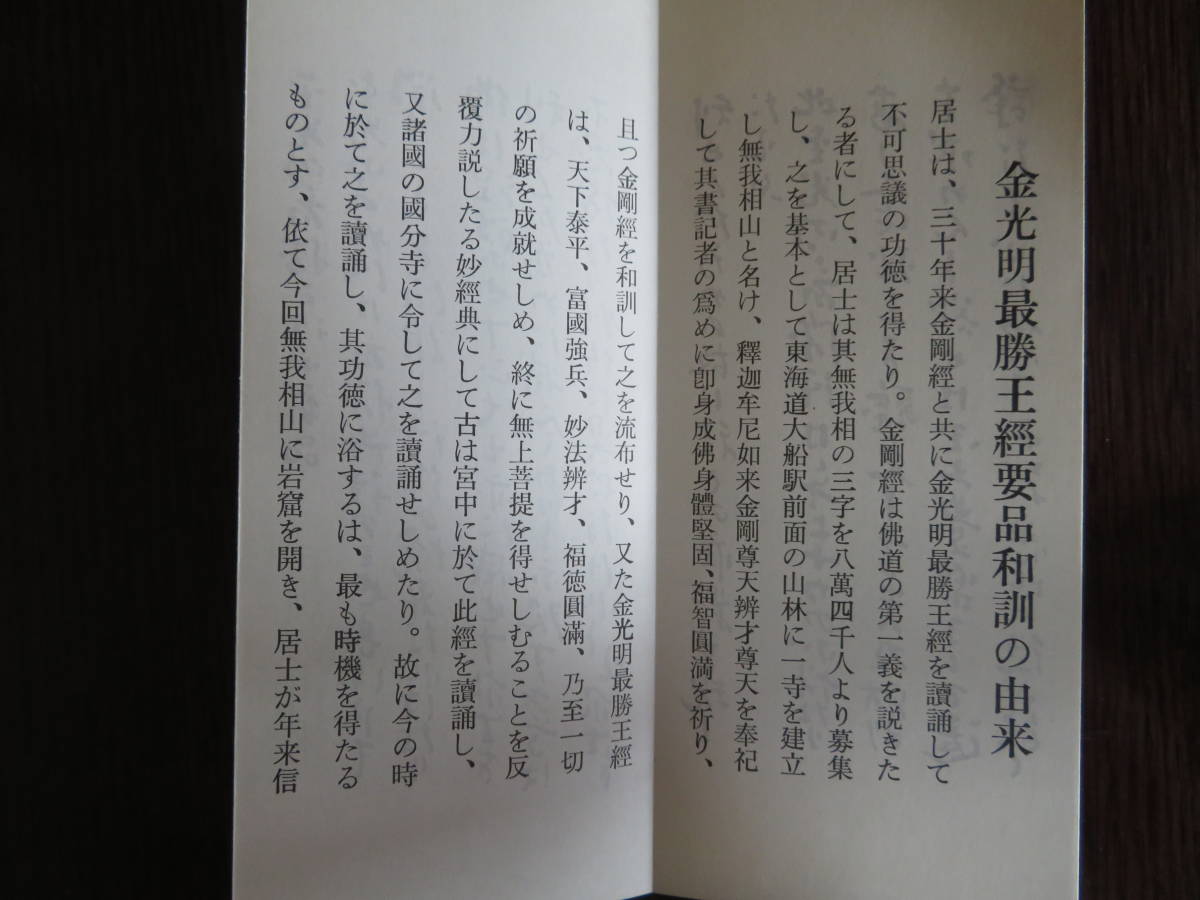 金光明最勝王經要品和訓の由来
居士は、三十年来金剛經と共に金光明最勝王經を讀誦して
不可思議の功徳を得たり。金剛經は佛道の第一義を説きた
る者にして、居士は其無我相の三字を八萬四千人より募集
し、之を基本として東海道大船駅前面の山林に一寺を建立
し無我相山と名け、釋迦牟尼如来金剛尊天辨才尊天を奉祀
して其書記者の爲めに卽身成佛身體堅固、福智圓満を祈り、
且つ金剛經を和訓して之を流布せり、又た金光明最勝王經
は、天下泰平、富國強兵、妙法辨才、福徳圓滿、乃至一切
の祈願を成就せしめ、終に無上菩提を得せしむることを反
覆力説したる妙經典にして古は宮中に於て此經を讀誦し、
又諸國の國分寺に令して之を讀誦せしめたり。故に今の時
に於て之を讀誦し、其功徳に浴するは、最も時機を得たる
ものとす、依て今回無我相山に岩窟を開き、居士が年来信